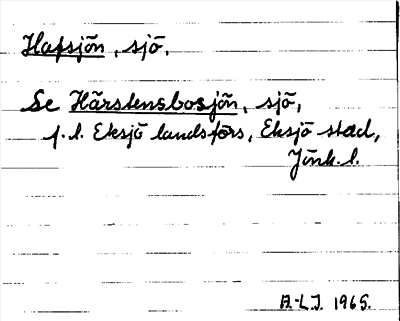 Hafsjön, sjö.
Se Hårstensbosjön, sjö,
f.l. Eksjö landsförs, Eksjö stad,
Jönk.l.
A.-L.J. 1965.